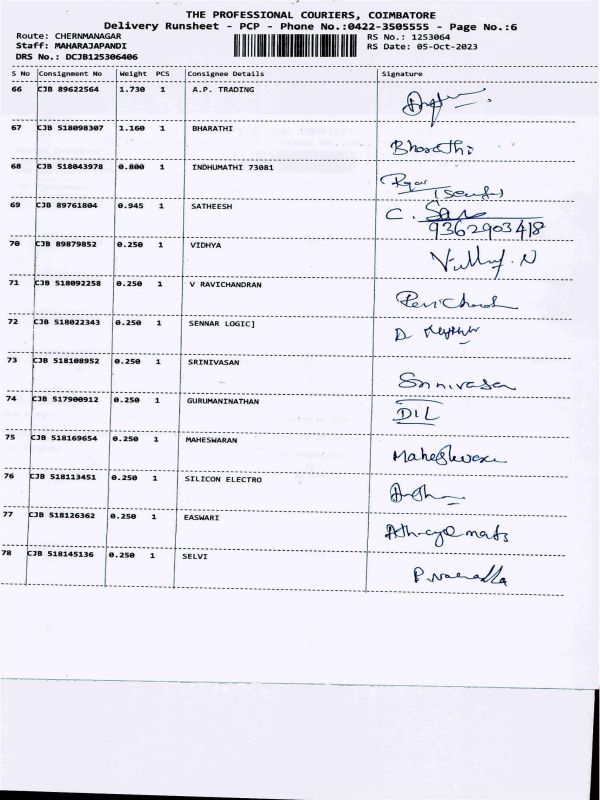 THE PROFESSIONAL COURIERS, COIMBATORE
Delivery Runsheet - PCP - Phone No.:0422-3505555 - Page No.:6
Route: CHERNMANAGAR RS No.: 1253064
Staff: MAHARAJAPANDI RS Date: 05-Oct-2023
DRS No.: DCJB125306406
S No Consignment No Weight PCS Consignee Details Signature
66 CJB 89622564 1.730 1 A.P. TRADING
67 CJB 518098307 1.160 1 BHARATHI Bharathi
68 CJB 518043978 0.800 1 INDHUMATHI 73081
69 CJB 89761804 0.945 1 SATHEESH C.
9362903418
70 CJB 89879852 0.250 1 VIDHYA
71 CJB 518092258 0.250 1 V RAVICHANDRAN
72 CJB 518022343 0.250 1 SENNAR LOGIC] D
73 CJB 518108952 0.250 1 SRINIVASAN Srinivasa
74 CJB 517900912 0.250 1 GURUMANINATHAN DIL
75 CJB 518169654 0.250 1 MAHESWARAN
76 CJB 518113451 0.250 1 SILICON ELECTRO
77 CJB 518126362 0.250 1 EASWARI
78 CJB 518145136 0.250 1 SELVI